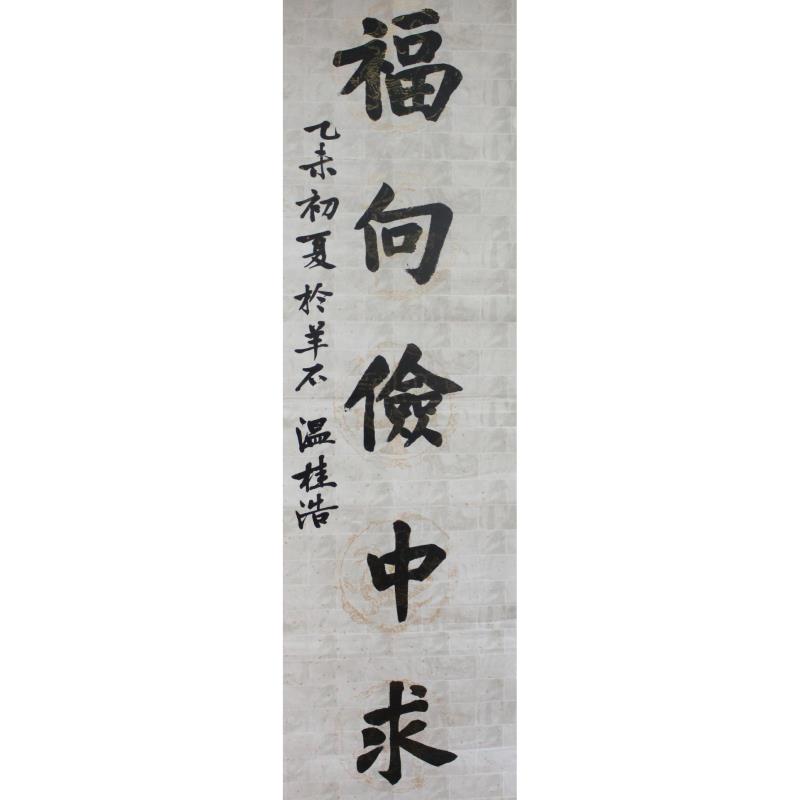 福向儉中求
乙未初夏於羊石 温桂浩